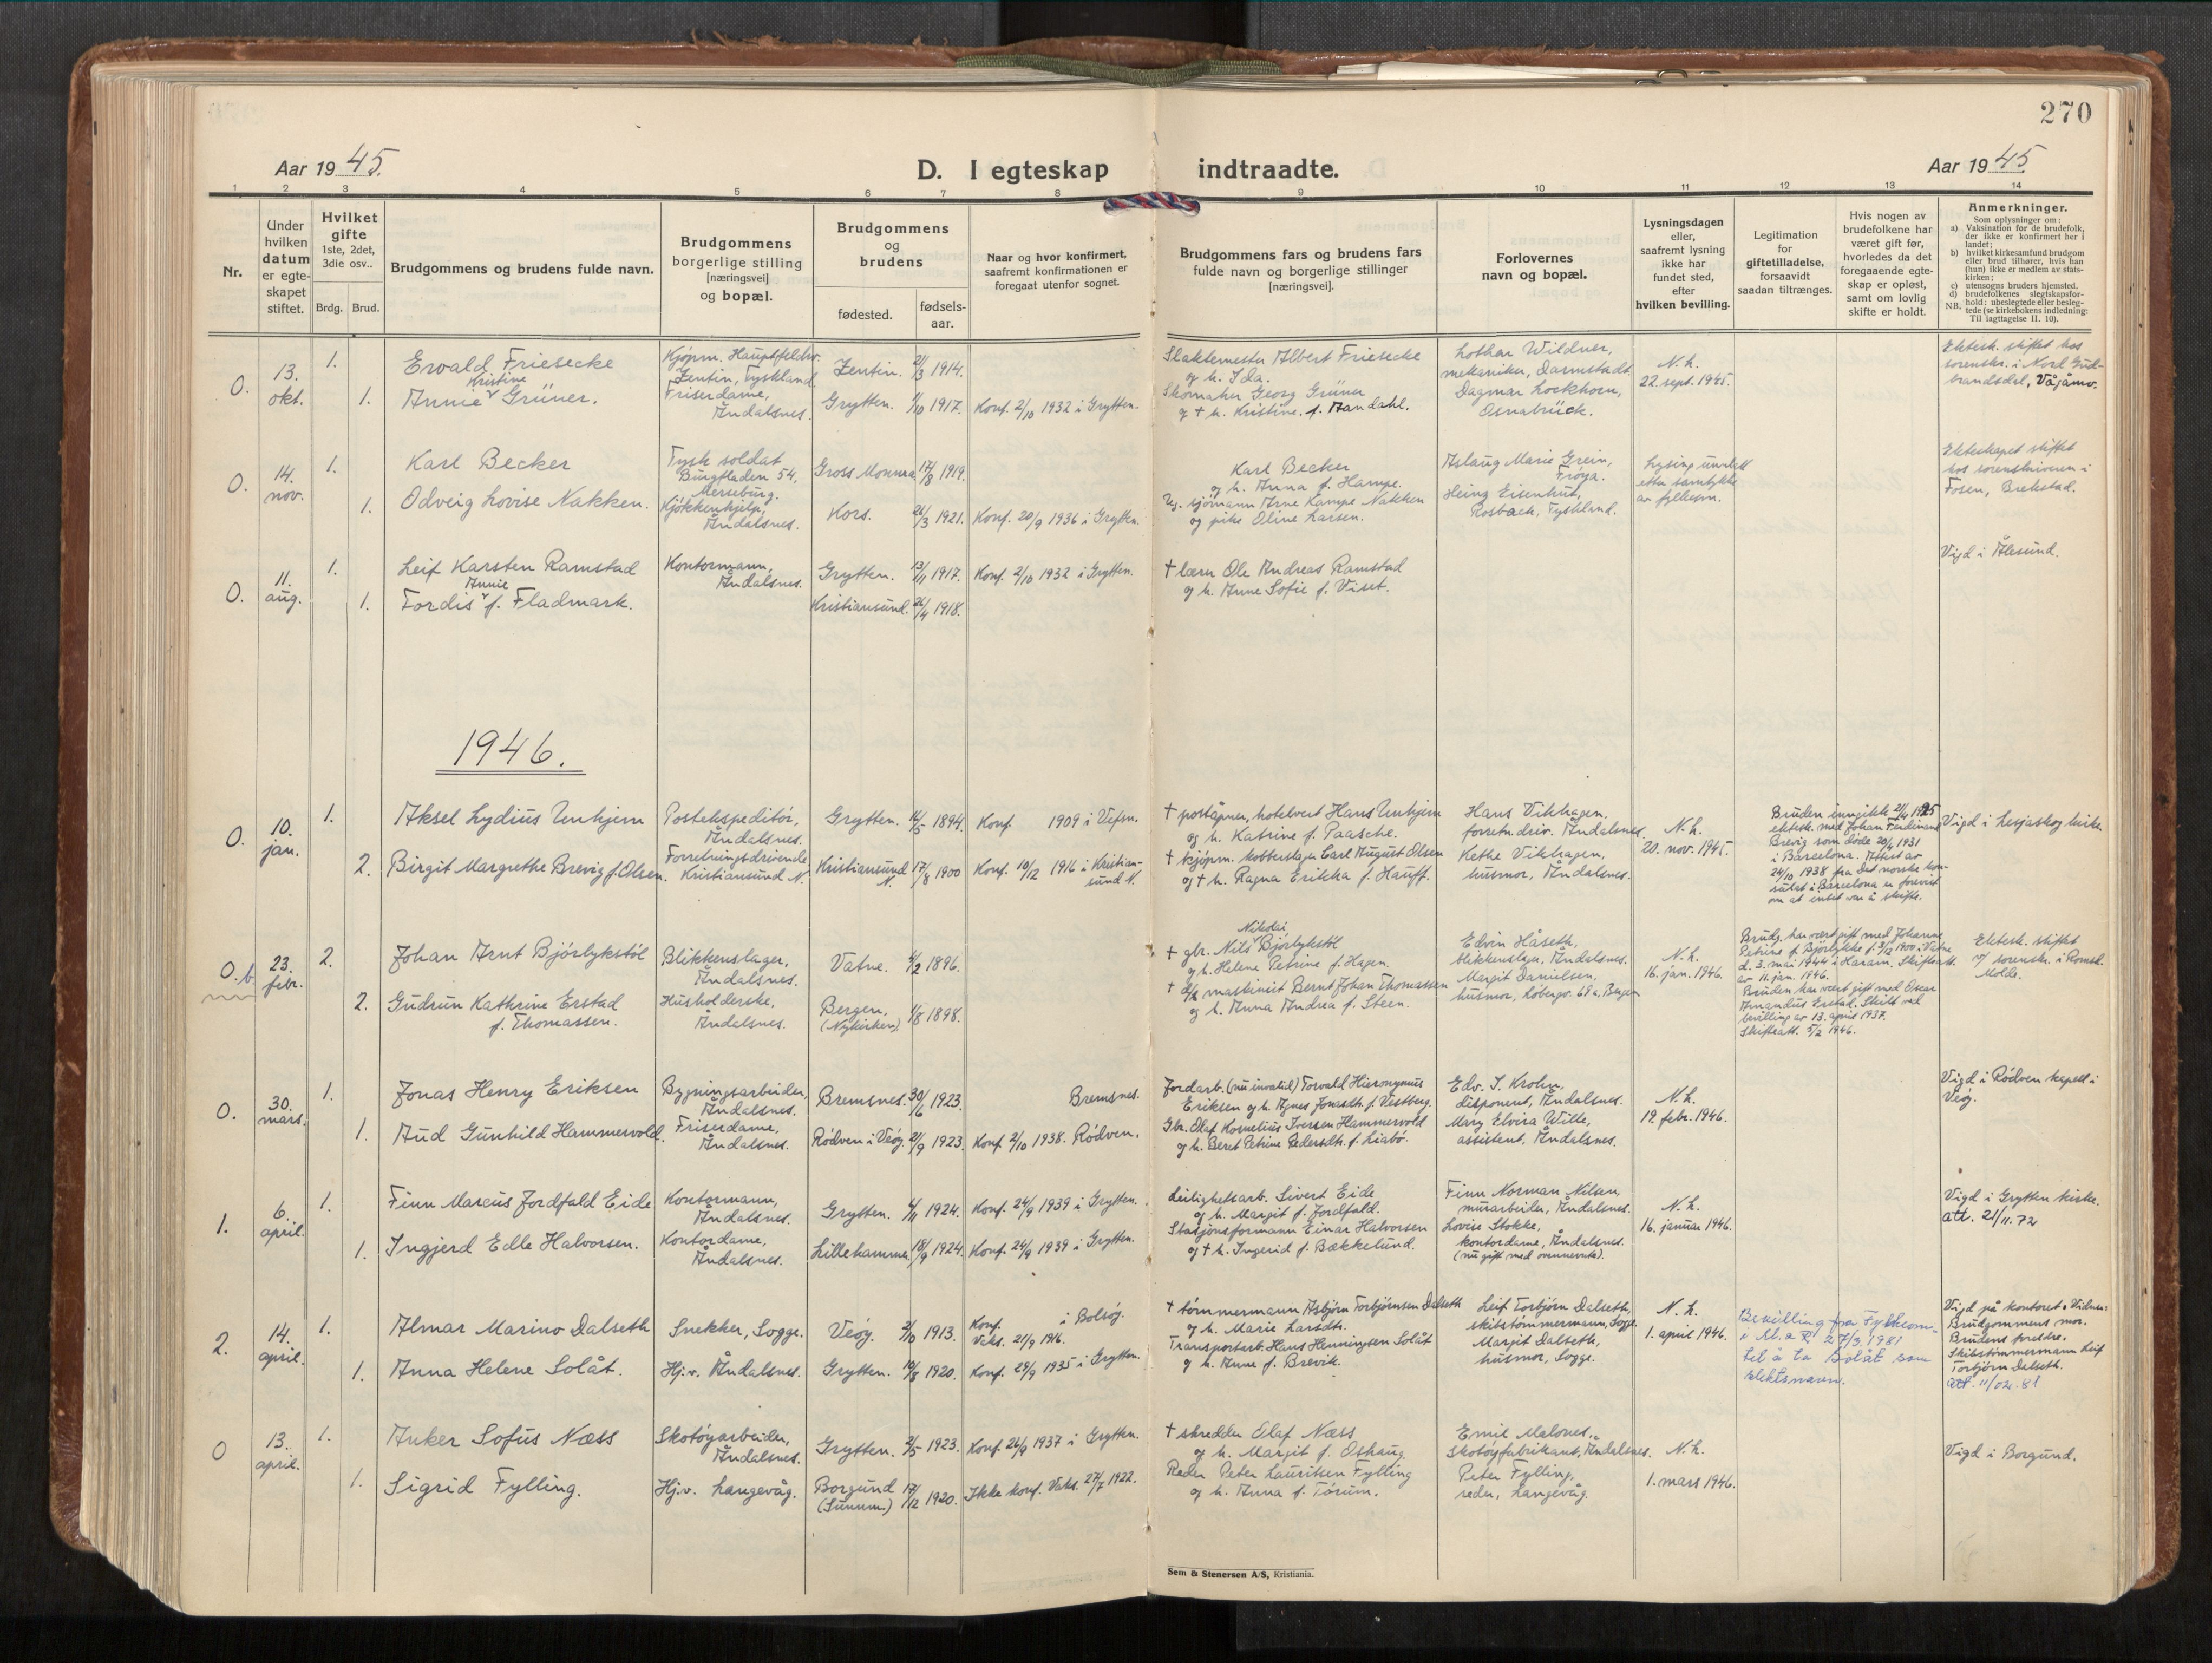 270
Aar 1945.
D. I egteskap indtraadte.
Aar 1945.
1 2 3 4 5 6 7 8 9 10 11 12 13 14
Nr.
Under
hvilken
datum
er egte-
skapet
stiftet.
Hvilket
gifte
1ste, 2det,
3die osv..
Brdg. Brud.
Brudgommens og brudens fulde navn.
Brudgommens
borgerlige stilling
[næringsvei]
og bopæl.
Brudgommens
og
brudens
fødested.
fødsels-
aar.
Naar og hvor konfirmert,
saafremt konfirmationen er
foregaat utenfor sognet.
Brudgommens fars og brudens fars
fulde navn og borgerlige stillinger
[næringsvei].
Forlovernes
navn og bopæl.
Lysningsdagen
eller,
saafremt lysning
ikke har
fundet sted,
efter
hvilken bevilling.
Legitimation
for
giftetilladelse,
forsaavidt
saadan tiltrænges.
Hvis nogen av
brudefolkene har
været gift før,
hvorledes da det
foregaaende egte-
skap er opløst,
samt om lovlig
skifte er holdt.
Anmerkninger.
Som oplysninger om:
a) Vaksination for de brudefolk,
der ikke er konfirmert her i
landet;
b) hvilket kirkesamfund brudgom
eller brud tilhører, hvis han
(hun) ikke er medlem av stats-
kirken;
c) utensogns bruders hjemsted.
d) brudefolkenes slegtskapsfor-
hold: ubeslegtede eller besleg-
tede (se kirkebokens indledning:
NB. Til iagttagelse II. 10).
0.
13.
okt.
1.
Ewald Friesecke
Kjøpm. Hauptfeldw.
Zentin, Tyskland
Zentin.
21/3 1914.
Slaktemester Albert Friesecke
og h. Ida.
Lothar Wildner,
mekaniker, Darmstadt
N. k.
22. sept. 1945.
Ektesk. stiftet hos
sorenskr. i Nord Gud-
brandsdal, Vågåmo.
1.
Kristine
Annie Grüner.
Friserdame,
Åndalsnes.
Grytten.
1/10 1917.
Konf. 2/10 1932 i Grytten.
Skomaker Georg Grüner
og † h. Kristine. f. Aandahl.
Dagmar Lockhorn,
Osnabrück.
0.
14.
nov.
1.
Karl Becker
Tysk soldat
Burgfladen 54,
Merseburg.
Gross Monnra
17/8 1919.
Karl Becker
og h. Anna f. Hampe.
Aslaug Marie Grein,
Frøya.
Lysing unnlatt
etter samtykke
av fylkesm.
Ekteskapet stiftet
hos sorenskriveren i
Fosen, Brekstad.
1.
Odveig Lovise Nakken.
Kjøkkenhjelp,
Åndalsnes.
Kors.
26/3 1921.
Konf. 20/9 1936 i Grytten.
Ug. sjømann Arne Kampe Nakken
og pike Oline Larsen.
Heinz Eisenhut,
Rosbach, Tyskland.
0.
11.
aug.
1.
Leif Karsten Ramstad
Kontormann,
Åndalsnes.
Grytten.
13/11 1917.
Konf. 2/10 1932 i Grytten.
† lærer Ole Andreas Ramstad
og h. Anne Sofie f. Viset.
Vigd i Ålesund.
1.
Annie
Tordis f. Fladmark.
Kristiansund.
26/4 1918.
1946.
0.
10.
jan.
1.
Aksel Lydius Unhjem
Postekspeditør,
Åndalsnes.
Grytten.
14/5 1894.
Konf. 1909 i Vefsn.
† poståpner, hotelvert Hans Unhjem
og h. Katrine f. Paasche.
Hans Vikhagen,
forretn.driv. Åndalsnes.
N. k.
20. nov. 1945.
Bruden inngikk 21/4 1925
ektesk. med Johan Ferdinand
Brevig som døde 20/4 1931
i Barcelona. Attest av
24/10 1938 fra Det norske kon-
sulat i Barcelona er forevist
om at intet var å skifte.
Vigd i Lesjaskog kirke.
2.
Birgit Margrethe Brevig f. Olsen.
Forretningsdrivende
Kristiansund N.
Kristiansund
N.
17/8 1900
Konf. 10/12 1916 i Kristian-
sund N.
† kjøpm. kobberslager Carl August Olsen
og † h. Ragna Erikka f. Hauff.
Kethe Vikhagen,
husmor, Åndalsnes.
0.b
23.
febr.
2.
Johan Arnt Bjørlykstøl
Blikkenslager,
Åndalsnes.
Vatne.
4/2 1896.
Nikolai
† gbr. Nils Bjørlykstøl
og h. Helene Petrine f. Hagen.
Edvin Håseth,
blikkenslager, Åndalsnes.
N. k.
16. jan. 1946.
Brudg. har vært gift med Johanne
Petrine f. Bjørlykke f. 3/12 1900 i Vatne
d. 3. mai 1944 i Haram. Skifteatt.
av 11. jan. 1946.
Bruden har vært gift med Oscar
Amandus Erstad. Skilt ved
bevilling av 13. april 1937.
Skifteatt. 5/2 1946.
Ektesk. stiftet
v/ sorenskr. i Romsd.
Molde.
2.
Gudrun Kathrine Erstad
f. Thomassen.
Husholderske,
Åndalsnes.
Bergen,
(Nykirken)
1/8 1898.
† d/s maskinist Bernt Johan Thomassen
og h. Anna Andrea f. Steen.
Margit Danielsen,
husmor, Løbergv. 68a, Bergen
0.
30.
mars.
1.
Jonas Henry Eriksen
Bygningsarbeider,
Åndalsnes.
Bremsnes.
30/6 1923.
Bremsnes.
Jordarb. (nu invalid) Torvald Hieronymus
Eriksen og h. Agnes Jonasdtr. f. Vestberg.
Edv. I. Krohn,
disponent, Åndalsnes.
N. k.
19. febr. 1946.
Vigd i Rødven kapell i
Veøy.
1.
Aud Gunhild Hammervold.
Friserdame,
Åndalsnes.
Rødven i Veøy.
2/9 1923.
Konf. 2/10 1938. Rødven.
Gbr. Olaf Kornelius Iversen Hammervold
og h. Beret Petrine Pedersdtr. f. Liabø.
Mary Elvira Witte,
assistent, Åndalsnes.
1.
6.
april.
1.
Finn Marcus Jordfald Eide
Kontormann,
Åndalsnes.
Grytten.
4/11 1924.
Konf. 24/9 1939 i Grytten.
Leilighetsarb. Sivert Eide
og h. Margit f. Jordfald.
Finn Norman Nilsen,
murarbeider, Åndalsnes.
N. k.
16. januar 1946.
Vigd i Grytten kirke.
att. 21/11. 72
1.
Ingjerd Edle Halvorsen.
Kontordame,
Åndalsnes.
Lillehammer
18/9 1924.
Konf. 24/9 1939 i Grytten.
Stasjonsformann Einar Halvorsen
og † h. Ingerid f. Bækkelund.
Lovise Stokke,
kontordame, Åndalsnes.
(nu gift med ovennevnte).
2.
14.
april.
1.
Almar Marino Dalseth
Snekker, Sogge.
Veøy.
2/10 1913.
Konf. i Bolsøy.
Vaks. 21/9 1916.
† tømmermann Asbjørn Torbjørnsen Dalseth
og h. Marie Larsdtr.
Leif Torbjørn Dalseth,
skibstømmermann, Sogge.
N. k.
1. april 1946.
Bevilling fra Fylkesm-
i M. & R. 27/3 1981
til å ta Solåt som
slektsnavn.
Vigd på kontoret. Vidner:
Brudgommens mor.
Brudens foreldre.
Skibstømmermann Leif
Torbjørn Dalseth.
att. 11/02. 81
1.
Anna Helene Solåt.
Hj.v. Åndalsnes.
Grytten.
10/8 1920.
Konf. 29/9 1935 i Grytten.
Transportarb. Hans Henningsen Solåt
og h. Anne f. Brevik.
Margit Dalseth,
husmor, Sogge.
0
13.
april.
1.
Anker Sofus Næss
Skotøyarbeider,
Åndalsnes.
Grytten.
2/5 1923.
Konf. 26/9 1937 i Grytten.
† skredder Olaf Næss
og h. Margit f. Oshaug
Emil Malones,
Skotøyfabrikant, Åndalsnes.
N. k.
1. mars 1946.
Vigd i Borgund.
1.
Sigrid Fylling.
Hj.v. Langevåg.
Borgund
(Sunnm.)
17/12 1920.
Ikke konf. Vaks. 27/7 1922.
Reder Peter Lauritsen Fylling
og h. Anna f. Tørum.
Peter Fylling,
reder, Langevåg.
Sem & Stenersen A/S, Kristiania.